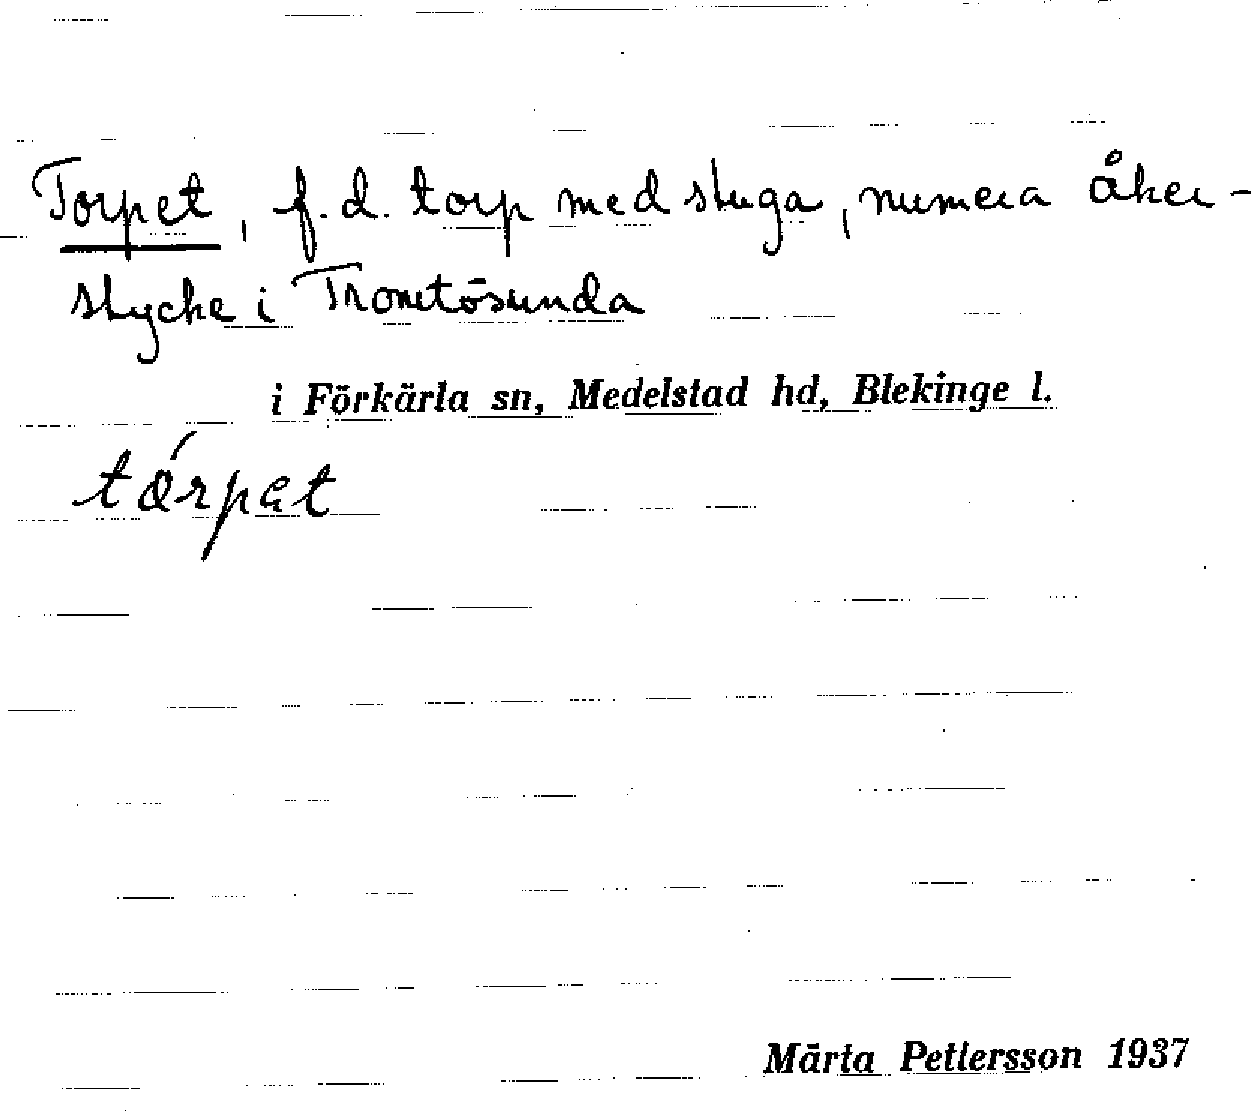 Torpet, f.d. torp med stuga, numera åker-
stycke i Tromtösunda
i Förkärla sn, Medelstad hd, Blekinge l.
Märta Pettersson 1937